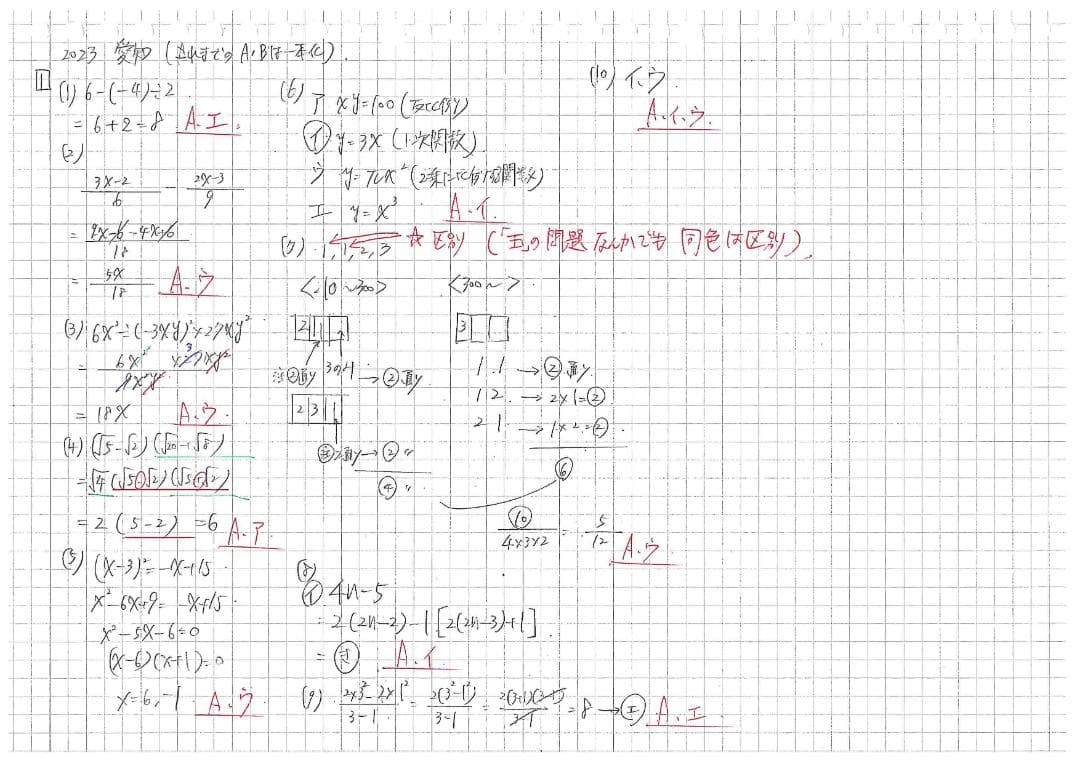 2023 愛知 (これまでのA・Bは一本化)
1
(1) 6-(-4)÷2
= 6+2=8 A.エ
(2)
3x-2/6 - 2x-3/9
= 9x-6-4x+6/18
= 5x/18 A.ウ
(3) 6x²÷(-3xy)²×27xy²
= 6x² ×27xy²/9x²y²
= 18x A.ウ
(4) (√5-√2)(√20+√8)
=√4(√5-√2)(√5+√2)
=2(5-2) =6 A.ア
(5) (x-3)²=-x+15
x²-6x+9=-x+15
x²-5x-6=0
(x-6)(x+1)=0
x=6,-1 A.ウ
(6) ア xy=100 (反比例)
イ y=3x (1次関数)
ウ y=πx² (2乗に比例する関数)
エ y=x³ A.イ
(7) 1,1,2,3 ☆ 区別 (「玉」の問題なんかでも 同色は区別)
<210~300> <300~>
2 1
②通り 3or1 → ②通り
2 3 1
②通り→② 〃
④ 〃
3
1 1 → ②通り
1 2 → 2×1=②
2 1 → 1×2=②
⑥
⑩/4×3×2 = 5/12 A.ウ
(8)
イ 4n-5
=2(2n-2)-1 [2(2n-3)+1]
= 奇 A.イ
(9) 2×3²-2×1²/3-1 = 2(3²-1²)/3-1 = 2(3+1)(3-1)/3-1 =8 →エ A.エ
(10) イ、ウ
A.イ、ウ